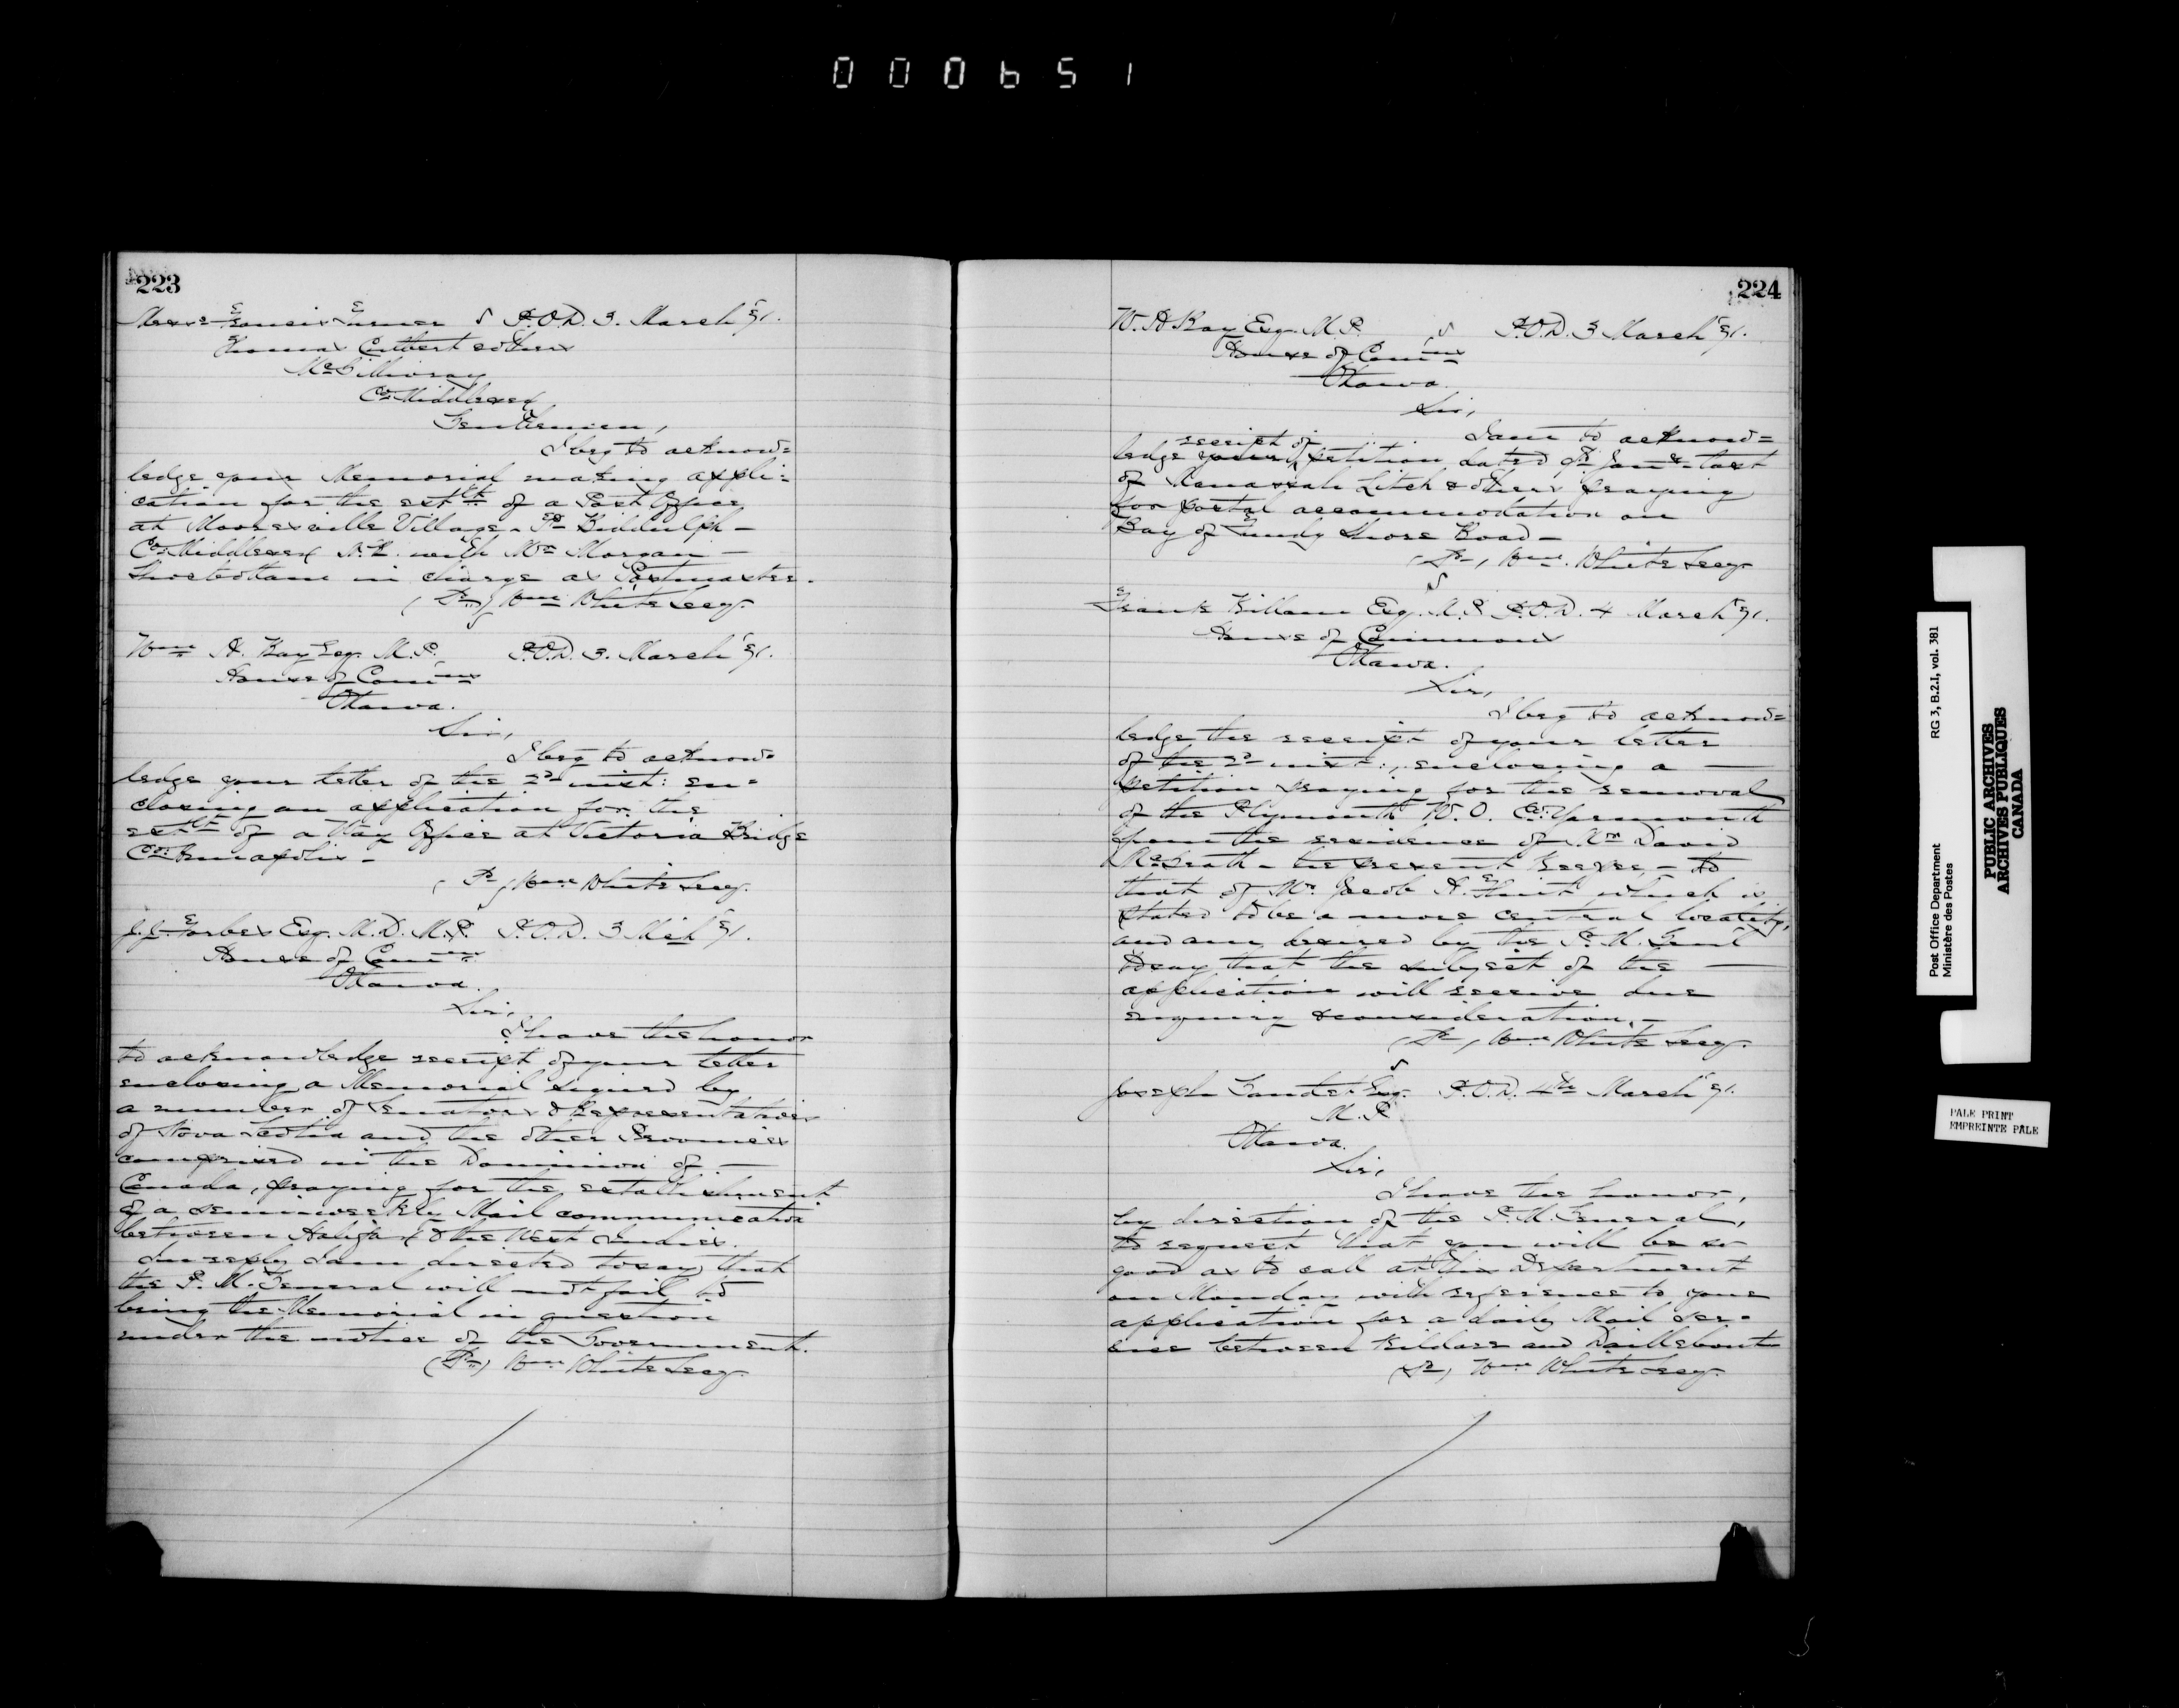 000651
223
Messrs Francis Turner P.O.D. 3. March '71.
Thomas Cutbert & others
McGillivray
Co. Middlesex
Gentlemen,
I beg to acknow=
ledge your Memorial making appli=
cation for the estt of a Post Office
at Mooresville Village - Tp Biddulph -
Co. Middlesex N.R. with Mr Morgan -
Shoebottam in charge as Postmaster.
(Sd) Wm White Secy.
Wm H. Ray Esq. M.P. P.O.D. 3. March '71.
House of Comms
Ottawa.
Sir,
I beg to acknow=
ledge your letter of the 2d inst: en=
closing an application for the
estt of a Way Office at Victoria Bridge
Co: Annapolis -
(Sd) Wm White Secy.
J. F. Forbes Esq. M.D. M.P. P.O.D. 3 Mch '71.
House of Comms
Ottawa.
Sir,
I have the honor
to acknowledge receipt of your letter
enclosing a Memorial signed by
a number of Senators & Representatives
of Nova Scotia and the other Provinces
comprised in the Dominion of -
Canada, praying for the establishment
of a semiweekly Mail communication
between Halifax & the West Indies.
In reply I am directed to say that
the P. M. General will not fail to
bring the Memorial in question
under the notice of the Government.
(Sd) Wm White Secy.
224
W. H Ray Esq. M.P. P.O.D. 3 March '71.
House of Comms
Ottawa.
Sir,
I am to acknow=
receipt of
ledge your petition dated 9th Jany last
of Manassah Litch & others praying
for postal accommodation on
Bay of Fundy Shore Road -
(Sd) Wm. White Secy.
Frank Killam Esq. M.P. P.O.D. 4 March '71.
House of Commons
Ottawa.
Sir,
I beg to acknow=
ledge the receipt of your letter
of the 2d inst:, enclosing a -
petition praying for the removal
of the Plymouth W.O. Co: Yarmouth
from the residence of Mr David
McGrath - the present keeper, - to
that of Mr. Jacob H. which is
stated to be a more central locality,
and am desired by the P. M. Genl
to say that the subject of the -
application will receive due
enquiry & consideration. -
(Sd) Wm White Secy.
Joseph Esq. P.O.D. 4th March '71.
M.P.
Ottawa.
Sir,
I have the honor,
by direction of the P. M. General,
to request that you will be so
good as to call at this Department
on Monday with reference to your
application for a daily Mail Ser=
vice between Kildare and Daillebout
(Sd) Wm White Secy.
Post Office Department RG 3, B.2.I, vol. 381
Ministère des Postes
PUBLIC ARCHIVES
ARCHIVES PUBLIQUES
CANADA
PALE PRINT
EMPREINTE PALE